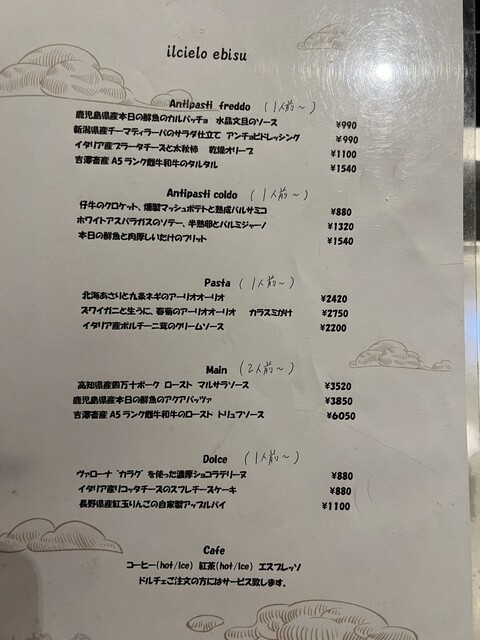 ilcielo ebisu
Antipasti freddo (1人前〜)
鹿児島県産本日の鮮魚のカルパッチョ 水晶文旦のソース ¥990
新潟県産チーマディラーパのサラダ仕立て アンチョビドレッシング ¥990
イタリア産ブラータチーズと太秋柿 乾燥オリーブ ¥1100
吉澤畜産 A5ランク雌和牛のタルタル ¥1540
Antipasti coldo (1人前〜)
仔牛のクロケット、燻製マッシュポテトと熟成バルサミコ ¥880
ホワイトアスパラガスのソテー、半熟卵とパルミジャーノ ¥1320
本日の鮮魚と肉厚しいたけのフリット ¥1540
Pasta (1人前〜)
北海あさりと九条ネギのアーリオオーリオ ¥2420
ズワイガニと生うに、春菊のアーリオオーリオ カラスミがけ ¥2750
イタリア産ポルチーニ茸のクリームソース ¥2200
Main (2人前〜)
高知県産四万十ポーク ロースト マルサラソース ¥3520
鹿児島県産本日の鮮魚のアクアパッツァ ¥3850
吉澤畜産 A5ランク雌和牛のロースト トリュフソース ¥6050
Dolce (1人前〜)
ヴァローナ"カラク"を使った濃厚ショコラテリーヌ ¥880
イタリア産リコッタチーズのスフレチーズケーキ ¥880
長野県産紅玉りんごの自家製アップルパイ ¥1100
Cafe
コーヒー(hot/ice) 紅茶(hot/ice) エスプレッソ
ドルチェご注文の方にはサービス致します。